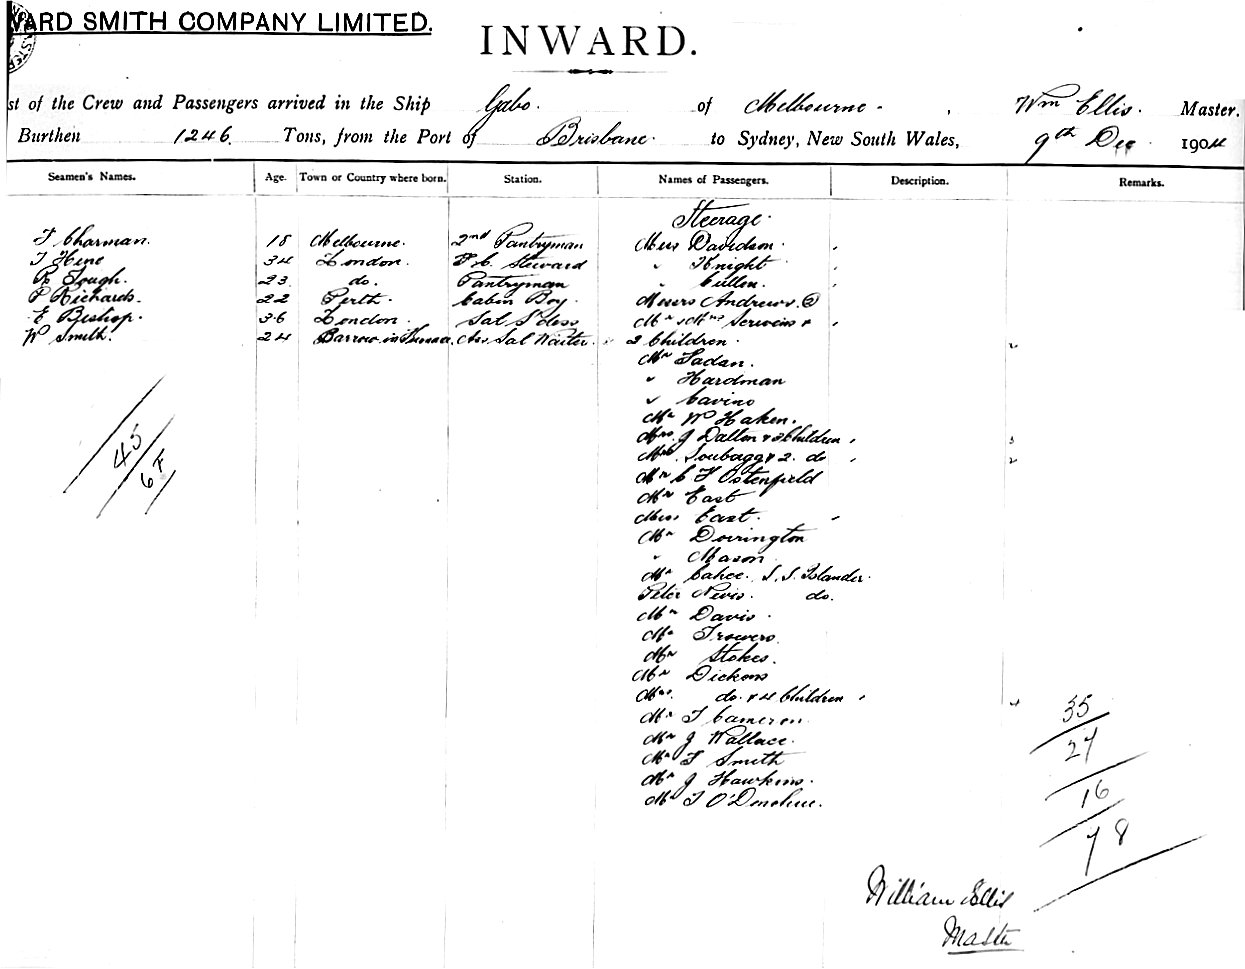 WARD SMITH COMPANY LIMITED.
INWARD.
st of the Crew and Passengers arrived in the Ship Gabo. of Melbourne. , Wm Ellis. Master.
Burthen 1246. Tons, from the Port of Brisbane. to Sydney, New South Wales, 9th Dec. 1904
Seamen's Names. Age. Town or Country where born. Station. Names of Passengers. Description. Remarks.
Steerage.
F Charman. 18 Melbourne. 2nd Pantryman Miss Davidson.
T Hine 34 London. F.C. Steward " Knight
R Gough. 23 do. Pantryman " Cullen.
P Richards. 22 Perth. Cabin Boy. Messrs Andrews. 2
E Bishop. 36 London. Sal S'dess Mr & Mrs &
W Smith. 24 Barrow in Asst Sal Waiter. 2 Children. 2
Mr
" Hardman
"
Mr W Haken.
Mrs. J Dalton & 3 Children 3
Mrs. & 2. do 2
Mr C F Ostenfield
Mr East
Miss East.
Mr Dorrington
" Mason
Mr Cahee. S. S. Islander.
Peter Nevis. do.
Mr Davis.
Mr
Mr Stokes.
Mr Dickens
Mrs. do. & 4 Children 4
Mr T Cameron.
Mr J Wallace.
Mr F Smith
Mr J Hawkins.
Mr T O'Donohue.
45
6 F
35
27
16
78
William Ellis
Master